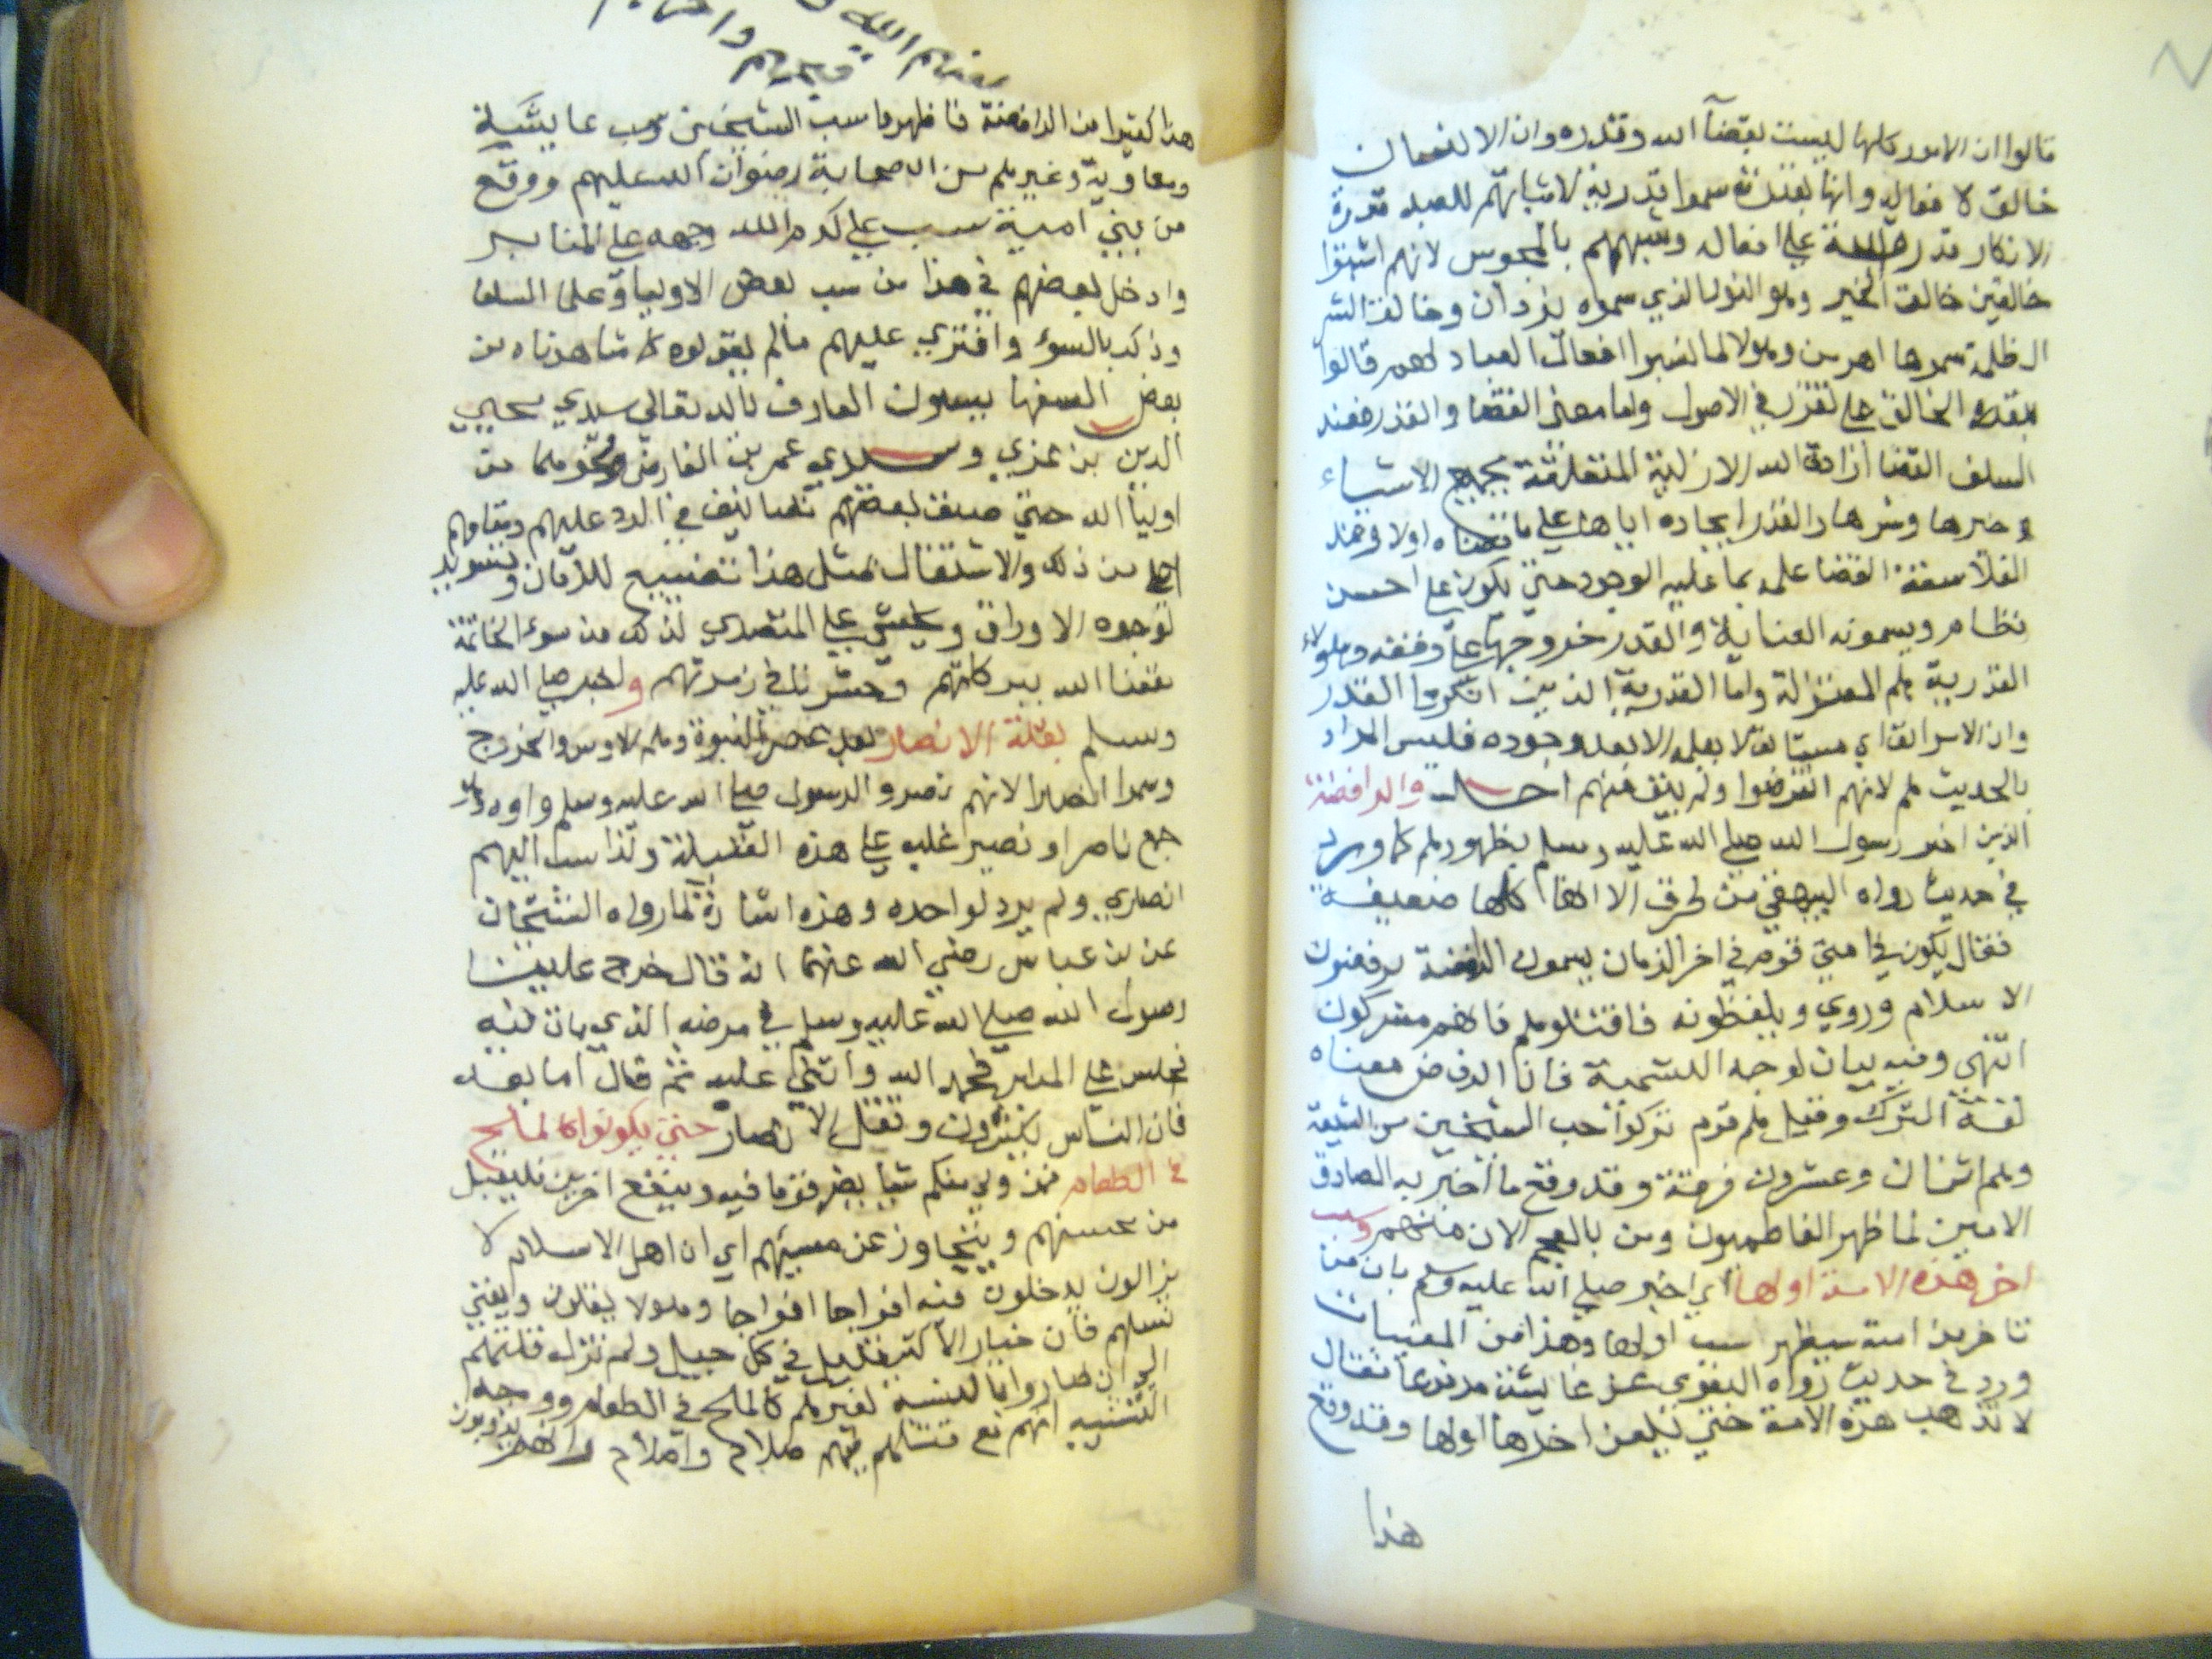 قالوا ان الامور كلها ليست بقضآ الله وقدره وان الانسان
خالق لافعاله وانها بقدرته سموا قدرية لاثباتهم للعبد قدرة
لانكار قدرة الله على افعاله وشبههم بالمجوس لانهم اثبتوا
خالقين خالق الخير وهو النور الذي سموه يزدان وخالق الشر
الظلمة سموها اهرمن وهولا لما نسبوا افعال العباد لهم قالوا
بتعدد الخالق على تقرر في الاصول واما معنى القضا والقدر فعند
السلف القضا ارادة الله الازلية المتعلقة بجميع الاشياء
خيرها وشرها والقدر ايجاده اياها على ما قضاه اولا وعند
الفلاسفة القضا علمه بما عليه الوجود حتى يكون على احسن
نظام ويسمونه العناية والقدر خروجها على وفقه وهولاء
القدرية هم المعتزلة واما القدرية الذين انكروا القدر
وان الامر انف اي مستانف لا يعلمه الا بعد وجوده فليس المراد
بالحديث هم لانهم انقرضوا ولم يبق منهم احد والرافضة
الذين اخبر رسول الله صلى الله عليه وسلم بظهورهم كما ورد
في حديث رواه البيهقي من طرق الا انها كلها ضعيفة
فقال يكون في امتي قوم في اخر الزمان يسمون الرافضة يرفضون
الاسلام وروي ويلفظونه فاقتلوهم فانهم مشركون
انتهى وفيه بيان لوجه التسمية فان الرفض معناه
لغة الترك وقيل هم قوم تركوا حب الشيخين من الشيعة
وهم اثنان وعشرون فرقة وقد وقع ما اخبر به الصادق
الامين لما ظهر الفاطميون ومن بالعجم الان منهم وسب
اخر هذه الامة اولها اي اخبر صلى الله عليه وسلم بان من
تاخر من امته سيظهر سب اولها وهذا من المغيبات
ورد في حديث رواه البغوي عن عايشة مرفوعا فقال
لا تذهب هذه الامة حتى يلعن اخرها اولها وقد وقع
هذا
هذا كثيرا من الرافضة فاظهروا سب الشيخين وسب عايشة
ومعاوية وغيرهم من الصحابة رضوان الله عليهم ووقع
من بني امية سب علي كرم الله وجهه على المنابر
وادخل بعضهم في هذا من سب بعض الاوليا وعلما السلف
وذكر بالسوء وافترى عليهم مالم يقولوه كما شاهدناه من
بعض السفها يسبون العارف بالله تعالى سيدي محيي
الدين بن عربي وسيدي عمر بن الفارض ونحوهما من
اوليا الله حتى صنف بعضهم تصانيف في الرد عليهم ومقامهم
اجل من ذلك والاشتغال بمثل هذا تضييع للزمان وتسويد
لوجوه الاوراق ويخشى على المتصدي لذلك من سوء الخاتمة
نفعنا الله ببركاتهم وحشرنا في زمرتهم واخبر صلى الله عليه
وسلم بقلة الانصار بعد عصر النبوة وهم الاوس والخزرج
وسموا انصارا لانهم نصروا الرسول صلى الله عليه وسلم واووه
جمع ناصر او نصير غلب على هذه القبيلة ولذا نسب اليهم
انصاري ولم يرد لواحده وهذه اشارة لما رواه الشيخان
عن بن عباس رضي الله عنهما انه قال خرج علينا
رسول الله صلى الله عليه وسلم في مرضه الذي مات فيه
فجلس على المنبر فحمد الله واثنى عليه ثم قال اما بعد
فان الناس يكثرون وتقل الانصار حتى يكونوا كالملح
في الطعام فمن ولي منكم شيا يضر قوما فيه وينفع اخرين فليقبل
من محسنهم ويتجاوز عن مسيئهم اي ان اهل الاسلام لا
يزالون يدخلون فيه افواجا افواجا وهولا يقلون ويفنى
نسلهم فان خيار الاكثر قليل في كل جيل ولم تزل قلتهم
الى ان صاروا بالنسبة لغيرهم كالملح في الطعام ووجه
التشبيه انهم مع قلتهم فيهم صلاح واصلاح وانهم يذوبون